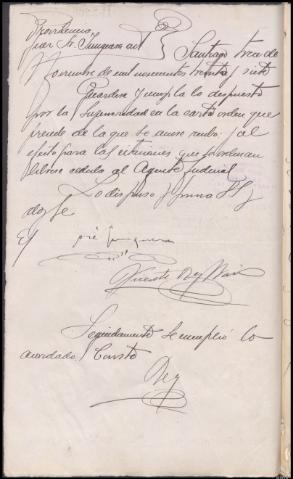 Providencia
Juez Sr.
Santiago trece de
Noviembre de mil novecientos treinta y siete
Guardese y cumpla lo dispuesto
por la Superioridad en la carta orden que
precede de la que se acuse recibo y al
efecto para las citaciones que se ordenan
librese cedula al Agente Judicial
Lo dispuso y firma SSª
doy fe
E/
José
Vicente Rey
Seguidamente se cumplió lo
acordado. Consto
Rey